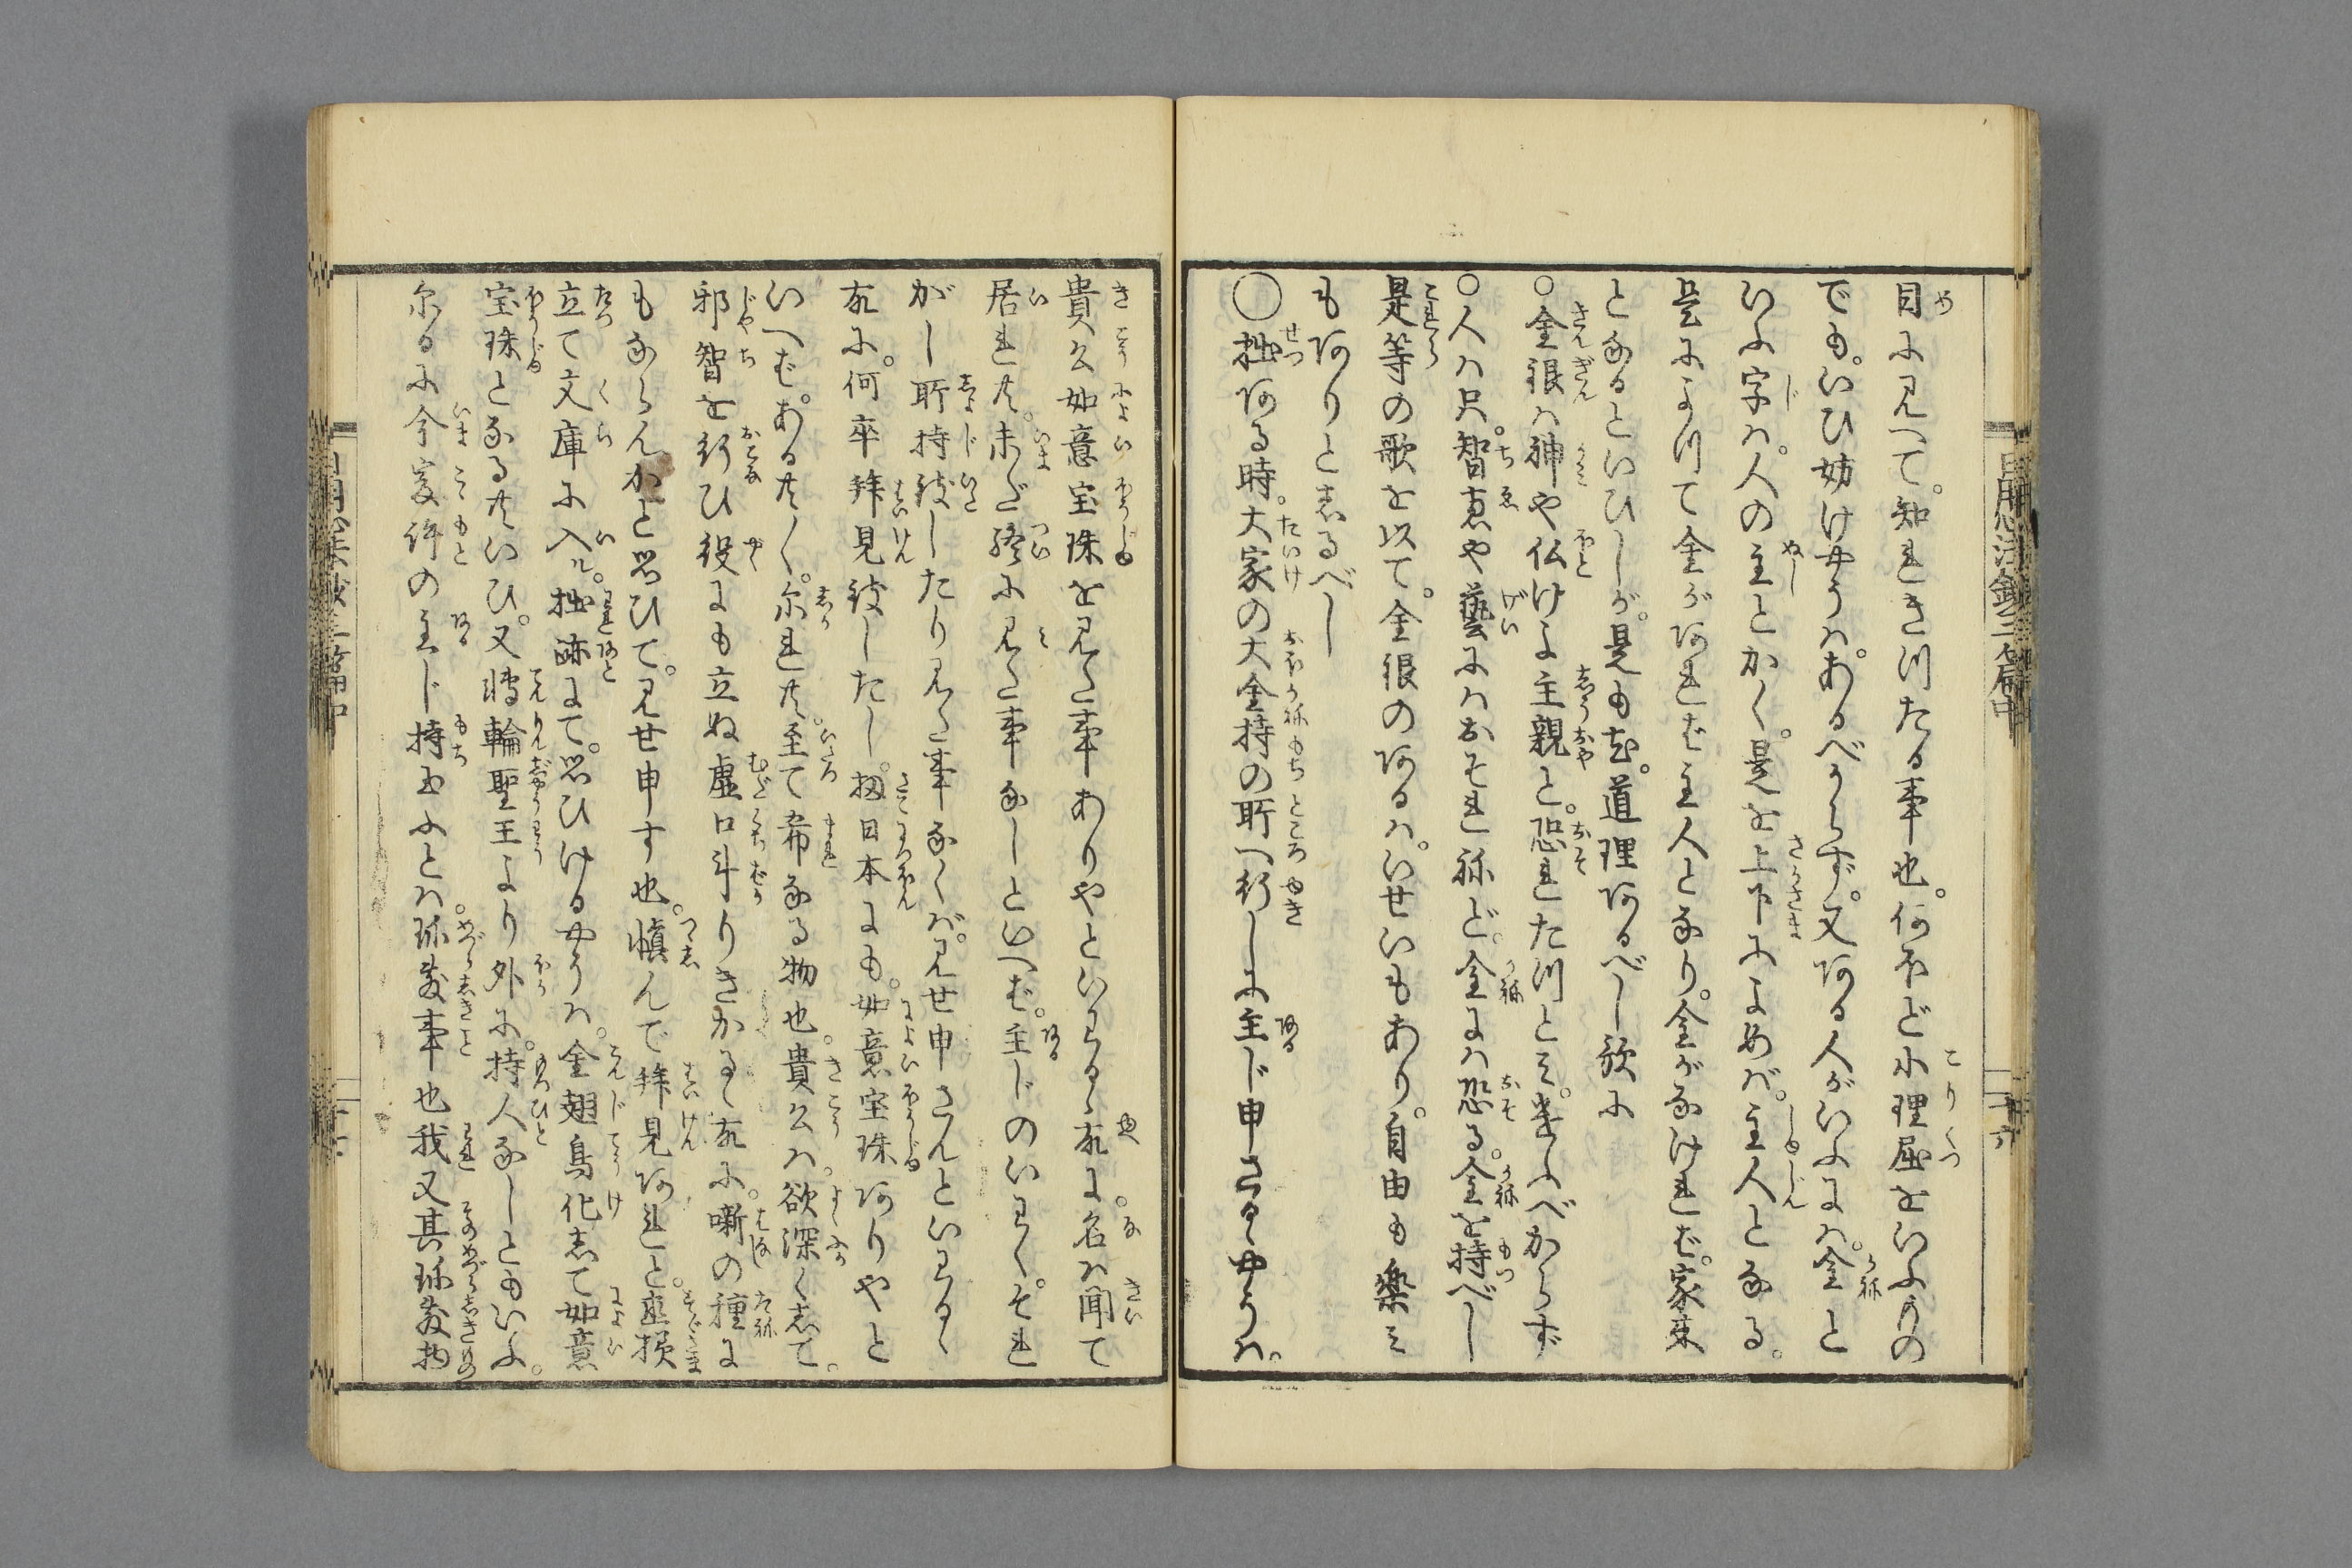 目に見へて。知れきつたる事也。何ほど小理屈をいふもの
でも。いひ妨けやうは。あるべからず。又ある人がいふには。金と
いふ字は。人の主とかく。是を上下によめば。主人となる。
是によつて金があれば主人となり。金がなければ。家来
となるといひしが。是も尤。道理あるべし歌に
○金銀は神や仏けよ主親と。恐れたつとみ。遣ふべからず
○人は只。智恵や藝にはおそれねど。金には恐る。金を持べし
是等の歌を以て。金銀のあるは。いせいもあり。自由も楽み
もありとしるべし
○拙ある時。大家の大金持の所へ行しに主じ申さるゝやうは。
貴公如意宝珠を見た事ありやといはるゝ故に。名は聞て
居れ共。未だ終に見た事なしといへば。主じのいはく。それ
がし所持致したり見た事なくば。見せ申さんといはるゝ
故に。何卒拝見致したし。扨日本にも。如意宝珠ありやと
いへば。ある共〳〵。尓れ共。至て希なる物也。貴公は。欲深くして。
邪智を行ひ役にも立ぬ虚口斗りきかるゝ故に。噺の種に
もならんかと思ひて。見せ申す也。慎んで拝見あれと。座損
立て文庫に入ル。拙跡にて。思ひけるやうは。金翅鳥化して如意
宝珠となる共いひ。又轉輪聖王より外に。持人なしともいふ。
尓るに今爰許の主じ持玉ふとは。珎敷事也我又其珎敷物